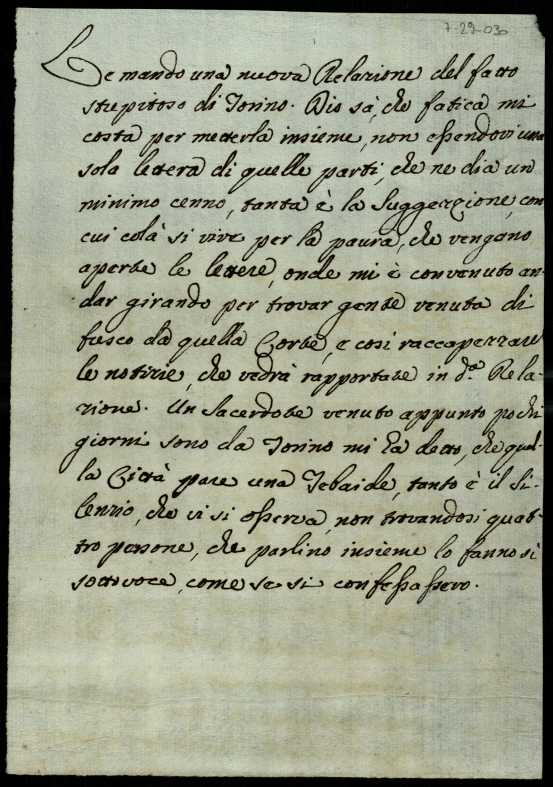 7-29-030
Le mando una nuova Relazione del fatto
strepitoso di Torino. Dio sà, che fatica mi
costa per metterla insieme, non essendovi una
sola lettera di quelle parti, che ne dia un
minimo cenno, tanta è la Suggezione, con
cui colà si vive per la paura, che vengano
aperte le lettere, onde mi è convenuto an-
dar girando per trovar gente venuta di
fresco da quella Corte, e così raccapezzare
le notizie, che vedrà rapportate in d.ª Rela-
zione. Un Sacerdote venuto appunto pochi
giorni sono da Torino mi ha detto, che quel-
la Città pare una Tebaide, tanto è il Si-
lenzio, che vi si osserva, non trovandosi quat-
tro persone, che parlino insieme lo fanno sì
sotto voce, come se si confessassero.